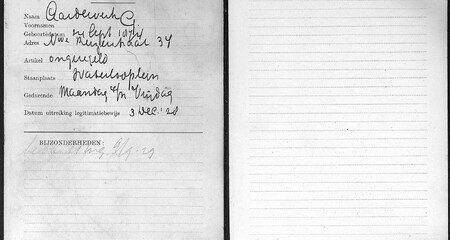 Naam Aardewerk G.
Voornamen
Geboortedatum 24 Sept 1874
Adres Nwe Keizersgr. 34
Artikel ongeregeld
Staanplaats Waterlooplein
Gedurende Maandag t/m Vrijdag
Datum uitreiking legitimatiebewijs 3 Dec. '28
BIJZONDERHEDEN: